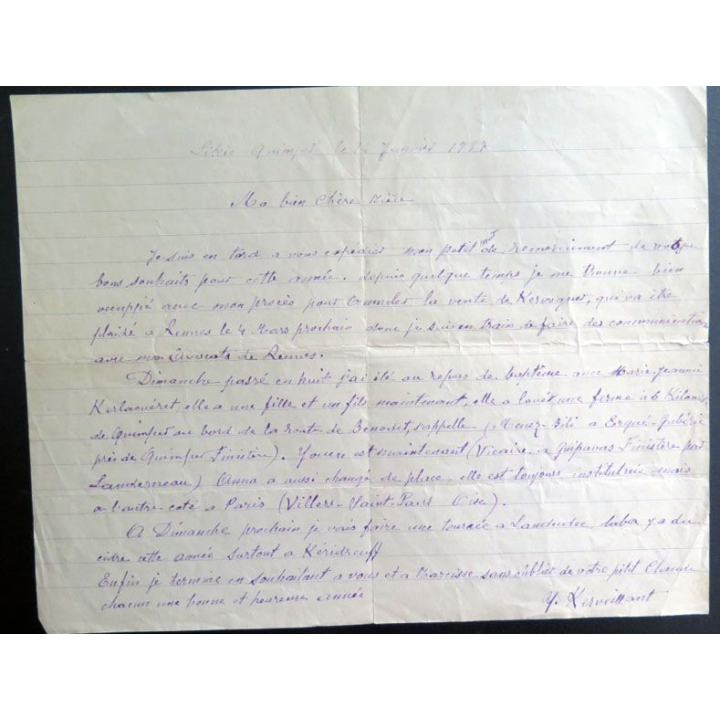 Quimper le Janvier
Ma bien Chère Mère
Je suis en tard a vous expedier mon petit mot de remerciment de vos
bons souhaits pour cette année. Depuis quelque temps je me trouve bien
occuppié avec mon procès pour annuler la vente de Kervoguer, qui va être
plaidé a Rennes le 4 Mars prochain donc je suis en train de faire des communication
avec mon Avocats de Rennes.
Dimanche passé en huit j'ai été au repas de baptême avec Marie-Jeanne
elle a une fille et un fils maintenant, elle a loué une ferme a 6 Kilom
de Quimper au bord de la route de Benodet, s'appelle (Menez-Bili a Ergué-Gabéric
près de Quimper Finistère). Youen est maintenant (Vicaire a Guipavas Finistère par
Landerneau) Anna a aussi changé de place elle est toujours institutrice mais
a l'autre coté a Paris (Villers-Saint-Paul Oise).
A Dimanche prochain je vais faire une tournée a Landudec y a du
cidre cette année surtout a Kéridreuff
Enfin je termine en souhaitant a vous et a Narcisse sans oublier de votre pitit
chacun une bonne et heureuse année
Y. Kerveillant